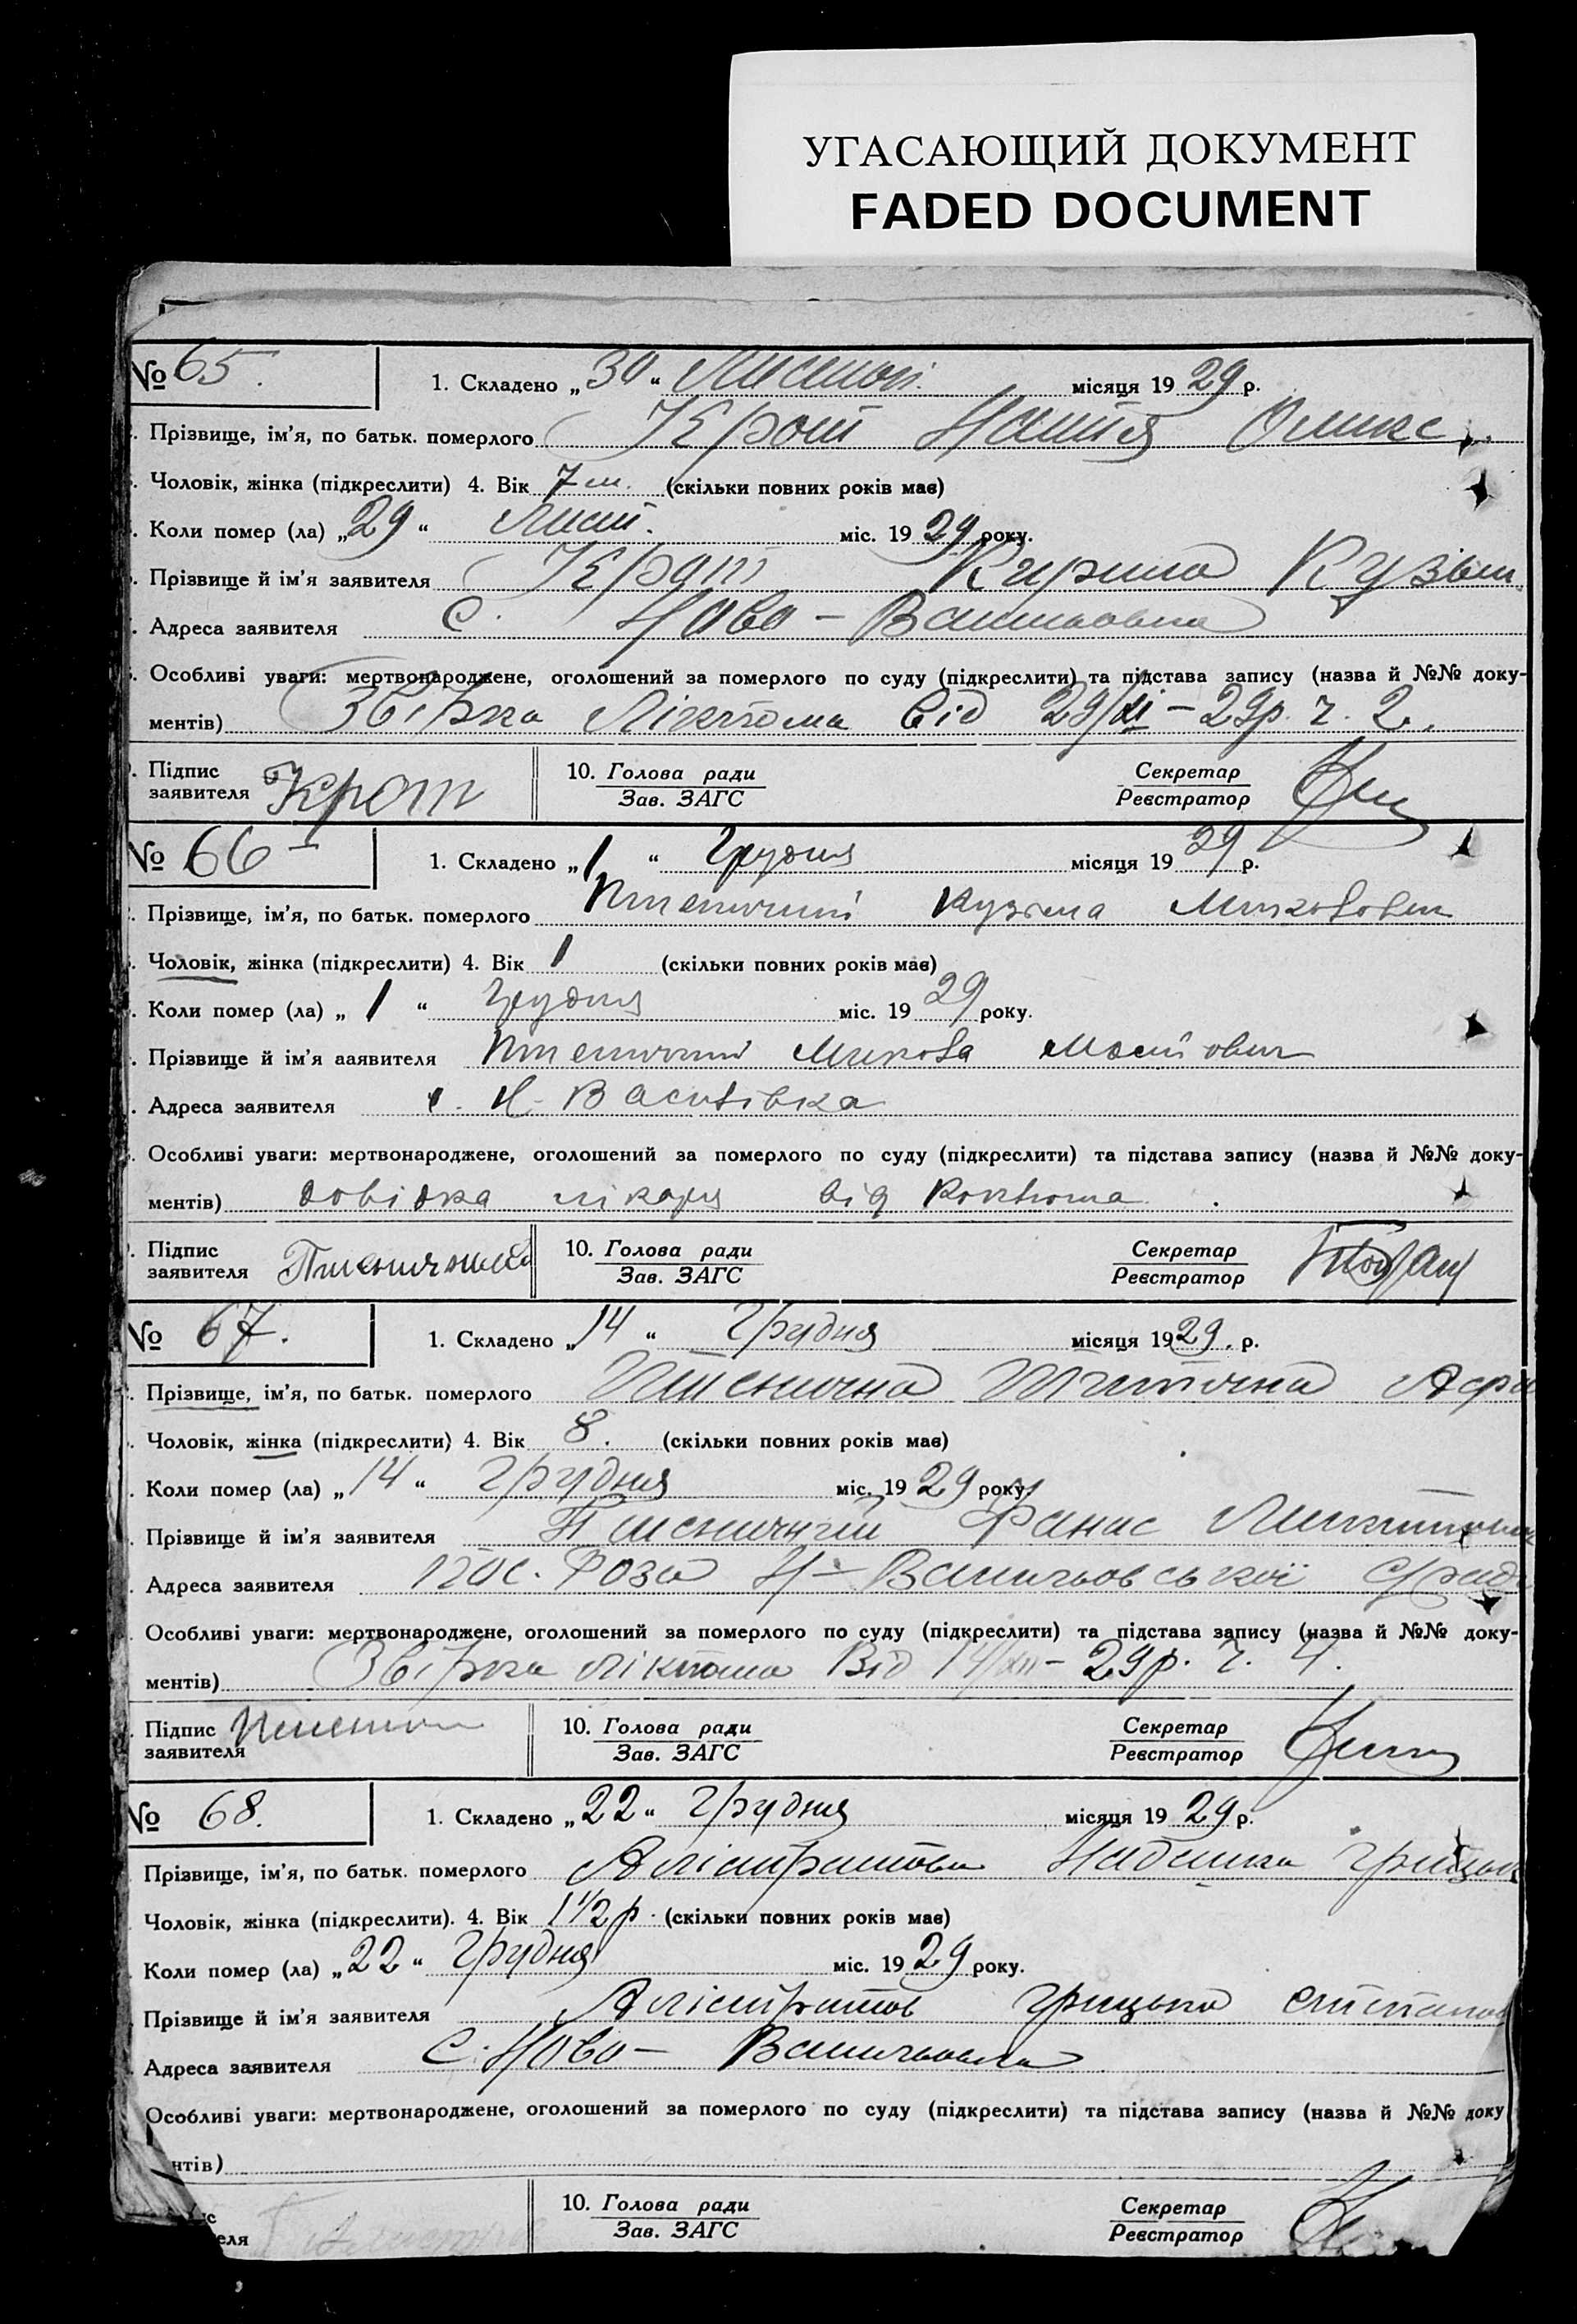 УГАСАЮЩИЙ ДОКУМЕНТ
FADED DOCUMENT
№ 65. 1. Складено „30“ місяця 1929 р.
Прізвище, ім'я, по батьк. померлого
Чоловік, жінка (підкреслити) 4. Вік 7 м. (скільки повних років має)
Коли помер (ла) „29“ Лист. міс. 1929 року.
Прізвище й ім'я заявителя Крот
Адреса заявителя с. Ново-
Особливі уваги: мертвонароджене, оголошений за померлого по суду (підкреслити) та підстава запису (назва й №№ доку-
ментів) Лікпома від 29/XI-29р. ч. 2.
Підпис
заявителя Крот 10. Голова ради
Зав. ЗАГС Секретар
Реєстратор
№ 66 1. Складено „1“ Грудня місяця 1929 р.
Прізвище, ім'я, по батьк. померлого Пшеничний Кузьма Миколович
Чоловік, жінка (підкреслити) 4. Вік 1 (скільки повних років має)
Коли помер (ла) „1“ Грудня міс. 1929 року.
Прізвище й ім'я ааявителя Пшеничний Микола
Адреса заявителя с. Н-Василівка
Особливі уваги: мертвонароджене, оголошений за померлого по суду (підкреслити) та підстава запису (назва й №№ доку-
ментів) довідка лікаря від
Підпис
заявителя Пшеничний 10. Голова ради
Зав. ЗАГС Секретар
Реєстратор
№ 67. 1. Складено „14“ Грудня місяця 1929. р.
Прізвище, ім'я, по батьк. померлого Пшенична
Чоловік, жінка (підкреслити) 4. Вік 8. (скільки повних років має)
Коли помер (ла) „14“ Грудня міс. 1929 року
Прізвище й ім'я заявителя Пшеничний
Адреса заявителя пос. Роза Н-
Особливі уваги: мертвонароджене, оголошений за померлого по суду (підкреслити) та підстава запису (назва й №№ доку-
ментів) лікпома Від 14/XII-29р. ч. 4.
Підпис
заявителя 10. Голова ради
Зав. ЗАГС Секретар
Реєстратор
№ 68. 1. Складено „22“ Грудня місяця 1929 р.
Прізвище, ім'я, по батьк. померлого
Чоловік, жінка (підкреслити). 4. Вік 1 1/2 р. (скільки повних років має)
Коли помер (ла) „22“ Грудня міс. 1929 року.
Прізвище й ім'я заявителя Грицько
Адреса заявителя С. Ново-
Особливі уваги: мертвонароджене, оголошений за померлого по суду (підкреслити) та підстава запису (назва й №№ доку
нтів)
еля 10. Голова ради
Зав. ЗАГС Секретар
Реєстратор